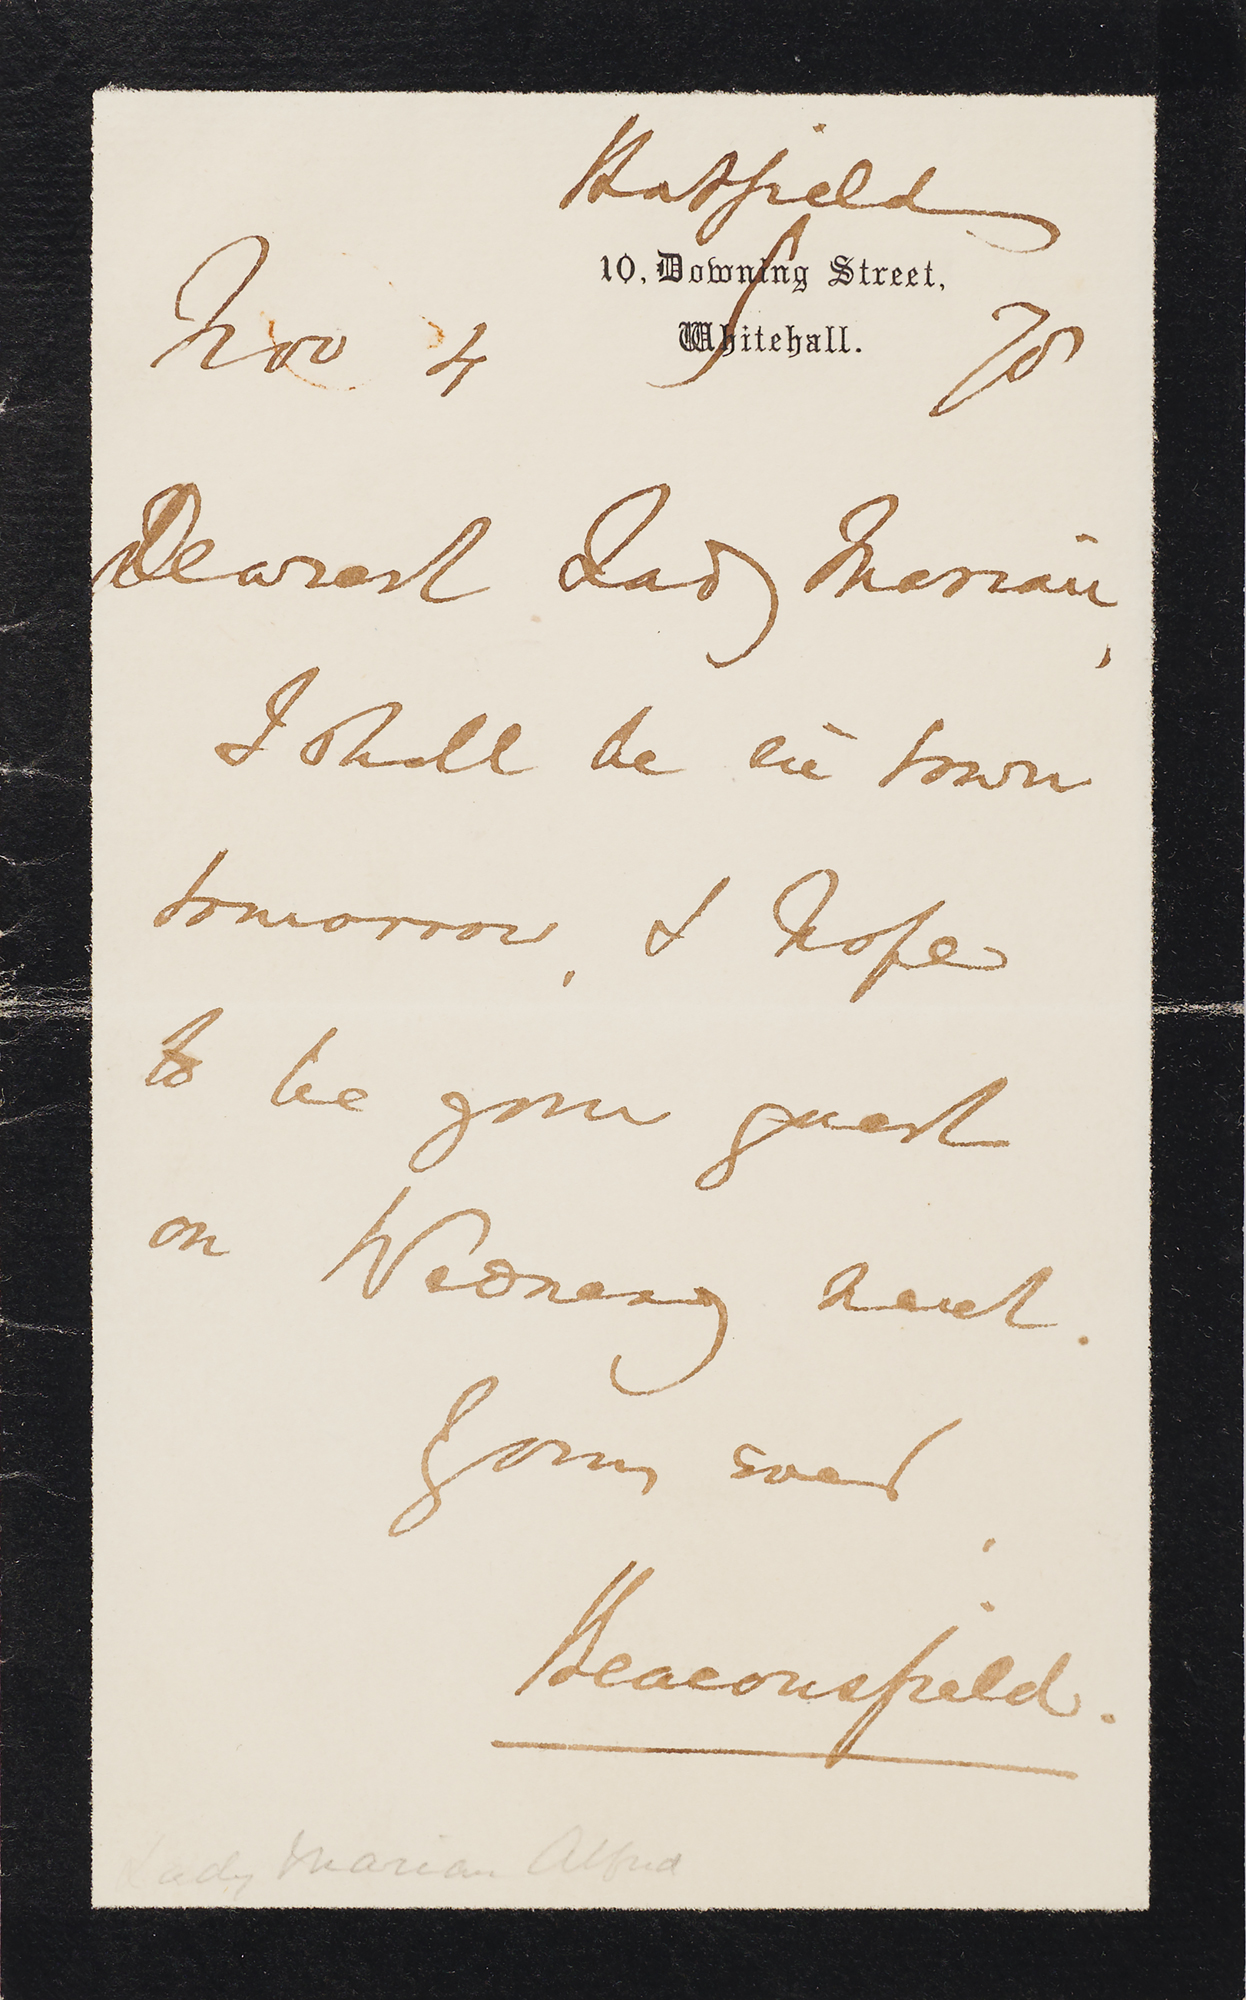 Hatfield
10, Downing Street,
Whitehall.
Nov 4 78
Dearest Lady Marian,
I shall be in town
tomorrow, & hope
to be your guest
on Wednesday next.
Yours ever,
Beaconsfield.
Lady Marian Alford